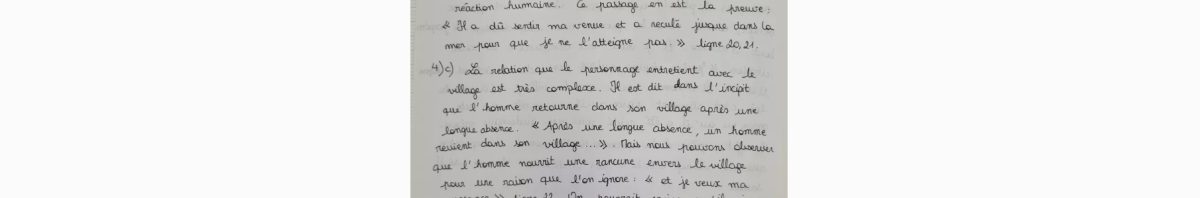 réaction humaine. Ce passage en est la preuve :
« Il a dû sentir ma venue et a reculé jusque dans la
mer pour que je ne l'atteigne pas. » ligne 20, 21.
4)c) La relation que le personnage entretient avec le
village est très complexe. Il est dit dans l'incipit
que l'homme retourne dans son village après une
longue absence. « Après une longue absence, un homme
revient dans son village ... ». Mais nous pouvons observer
que l'homme nourrit une rancune envers le village
pour une raison que l'on ignore : « et je veux ma